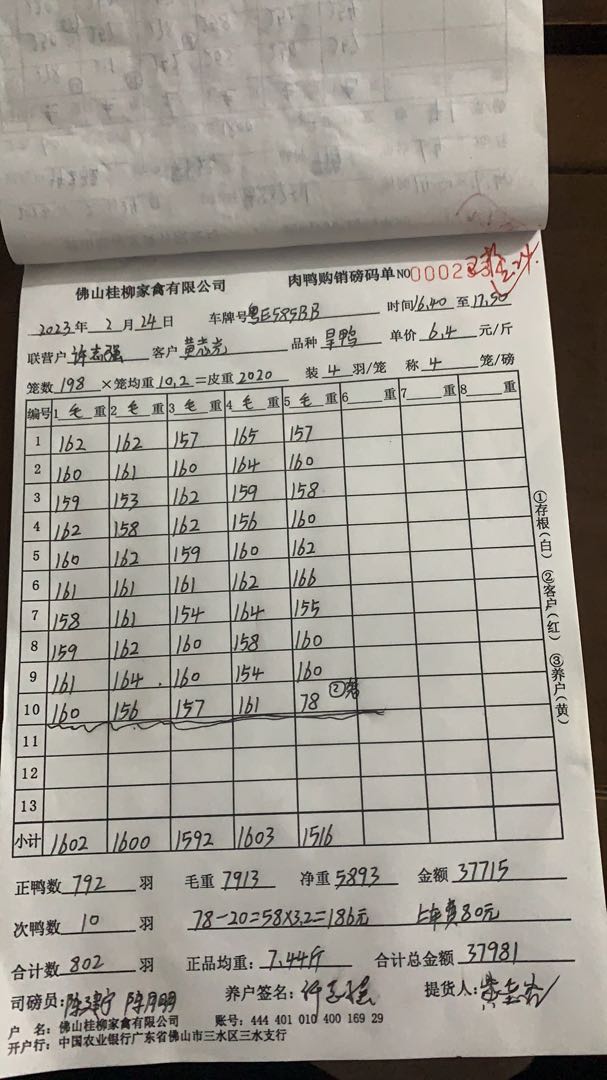 佛山桂柳家禽有限公司 肉鸭购销磅码单 NO 000233
2023年 2月 24日 车牌号 粤E585BB 时间 16,40 至 17,50
联营户 许志强 客户 黄志光 品种 旱鸭 单价 6,4 元/斤
笼数 198 ×笼均重 10,2 =皮重 2020 装 4 羽/笼 称 4 笼/磅
编号 1 毛 重 2 毛 重 3 毛 重 4 毛 重 5 毛 重 6 重 7 重 8 重
1 162 162 157 165 157
2 160 161 160 164 160
3 159 153 162 159 158
4 162 158 162 156 160
5 160 162 159 160 162
6 161 161 161 162 166
7 158 161 154 164 155
8 159 162 160 158 160
9 161 164 160 154 160
10 160 156 157 161 78 ②
11
12
13
小计 1602 1600 1592 1603 1516
正鸭数 792 羽 毛重 7913 净重 5893 金额 37715
次鸭数 10 羽 78-20=58×3.2=186元 上车费80元
合计数 802 羽 正品均重: 7.44斤 合计总金额 37981
司磅员: 养户签名: 许志强 提货人:
户 名: 佛山桂柳家禽有限公司 账号: 444 401 010 400 169 29
开户行: 中国农业银行广东省佛山市三水区三水支行
①存根(白) ②客户(红) ③养户(黄)